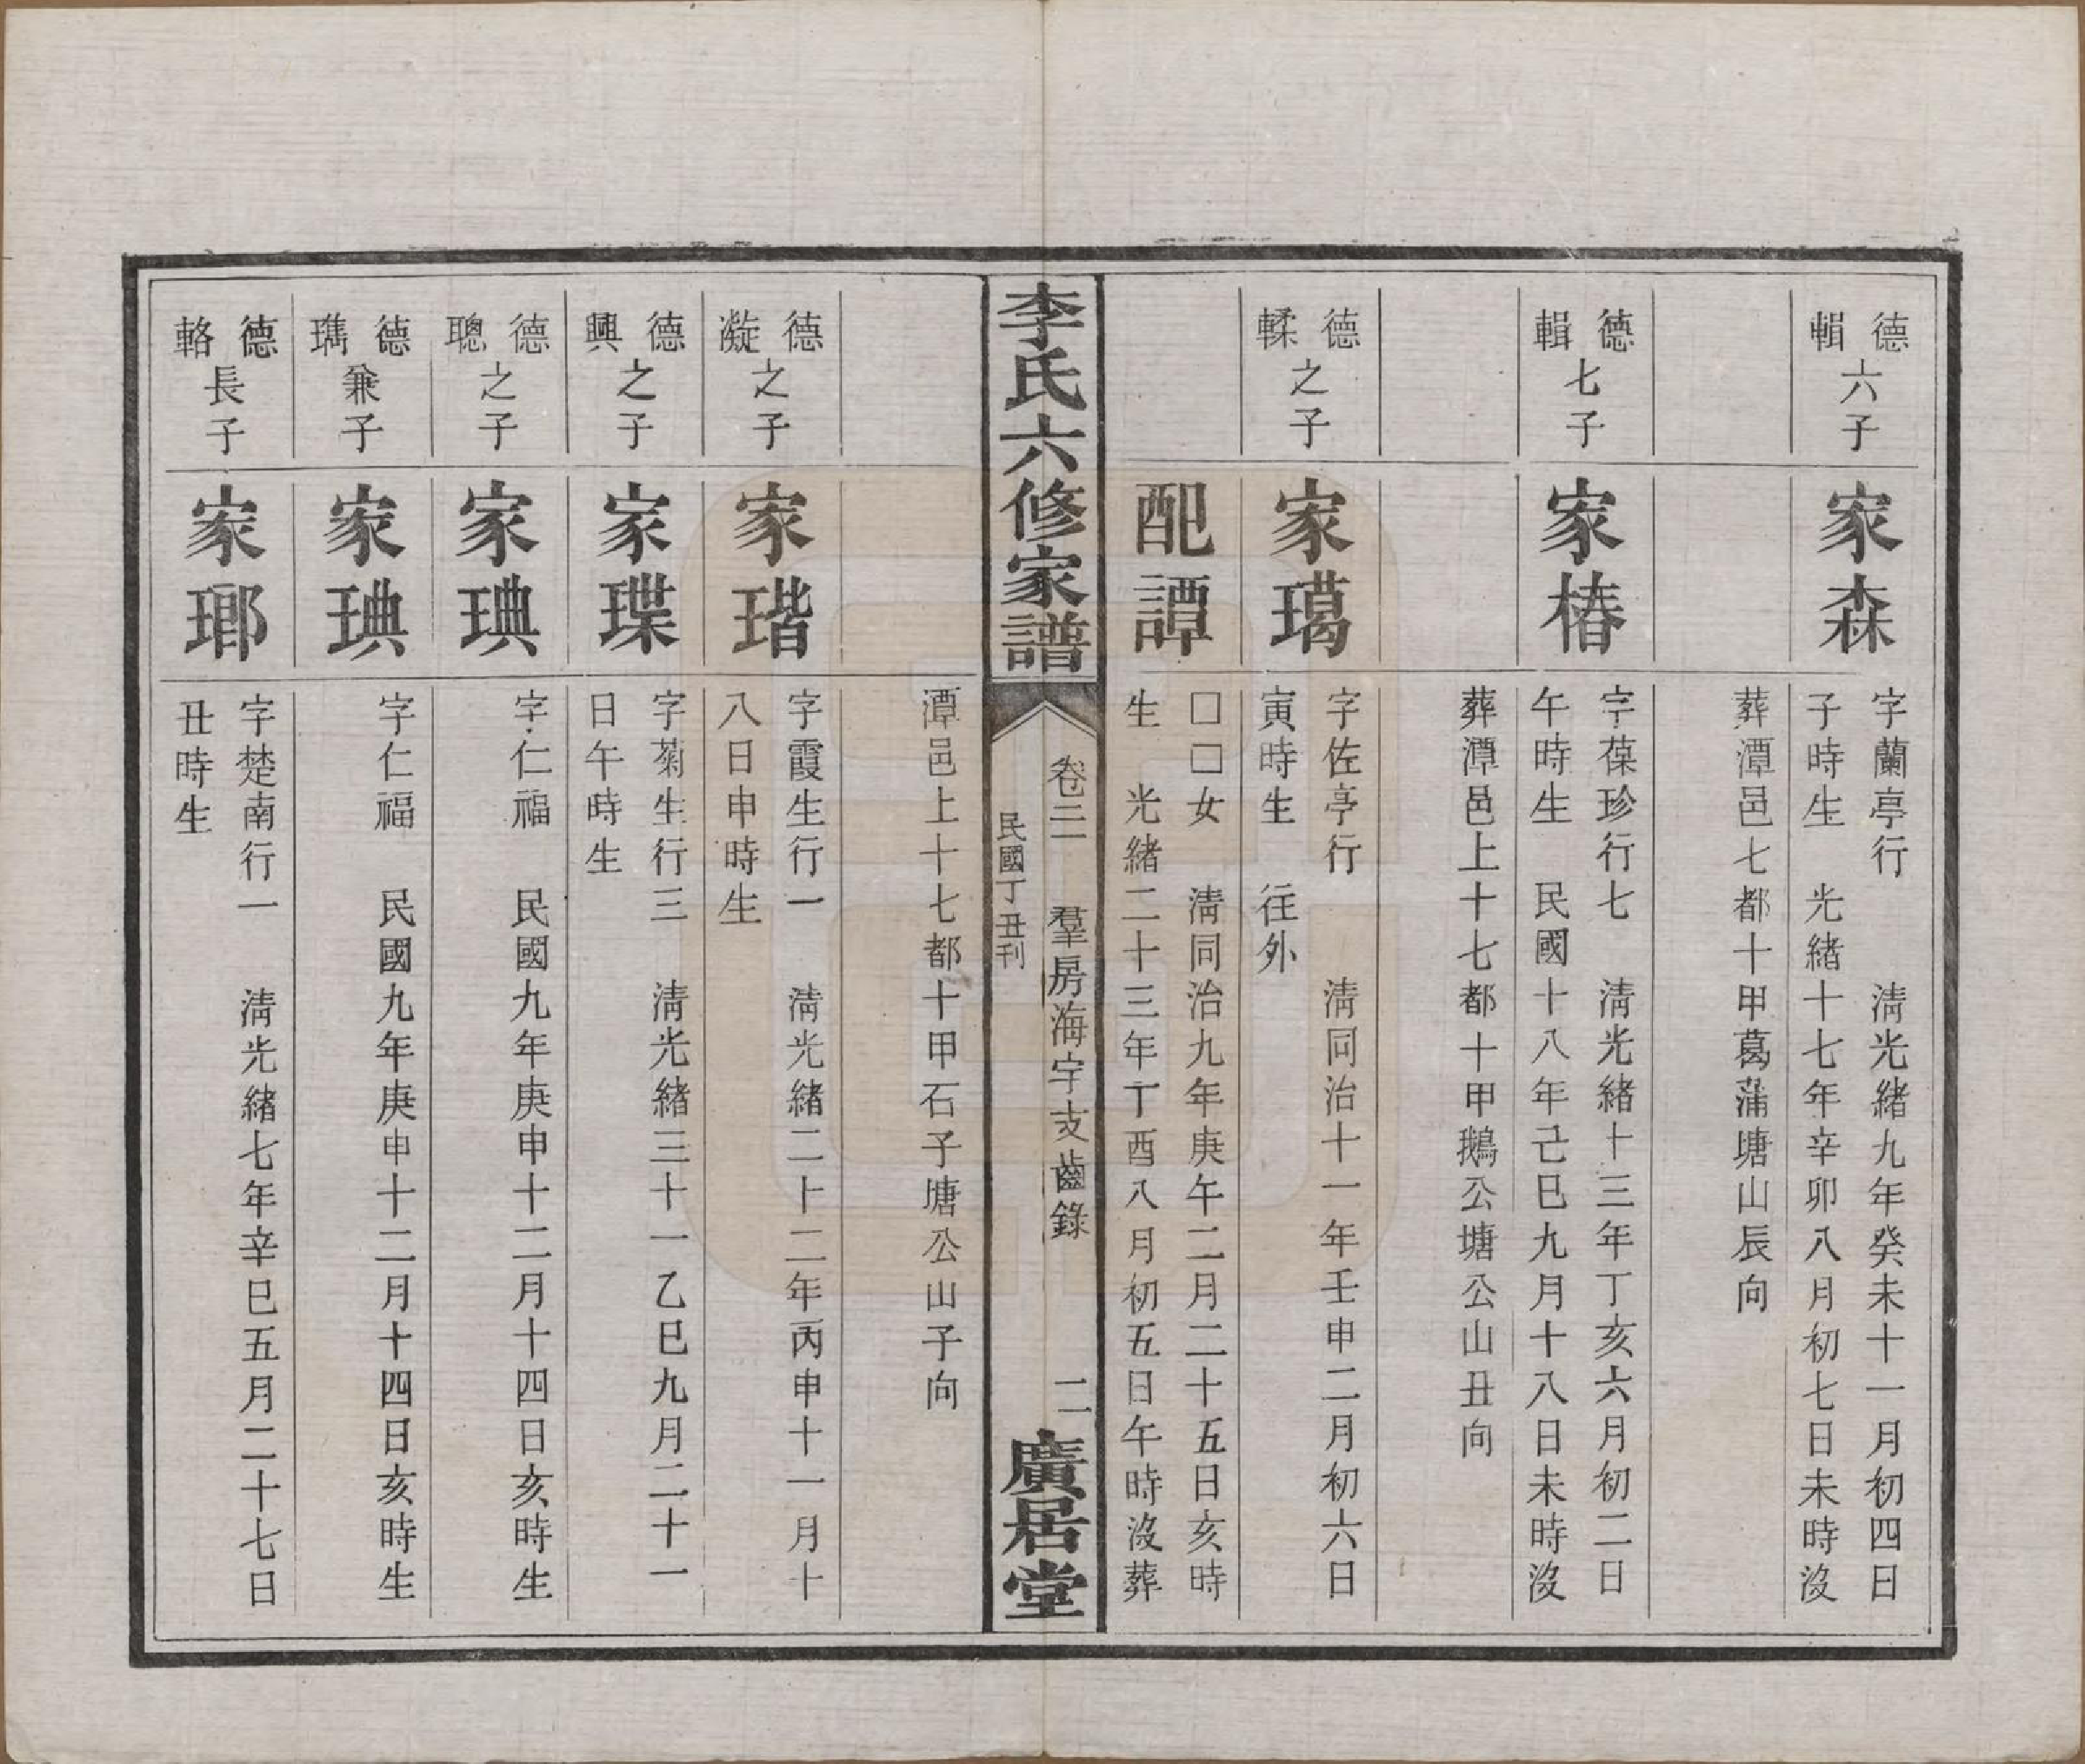 德輯六子
家森
字蘭亭行　清光緒九年癸未十一月初四日
子時生　光緒十七年辛卯八月初七日未時沒
葬潭邑七都十甲葛蒲塘山辰向
德輯七子
家椿
字葆珍行七　清光緒十三年丁亥六月初二日
午時生　民國十八年己巳九月十八日未時沒
葬潭邑上十七都十甲鵝公塘公山丑向
德輮之子
家璣
字佐亭行　清同治十一年壬申二月初六日
寅時生　往外
配譚
□□女　清同治九年庚午二月二十五日亥時
生　光緒二十三年丁酉八月初五日午時沒葬
李氏六修家譜
卷三一　羣房海宇支齒錄　二
民國丁丑刊
廣居堂
潭邑上十七都十甲石子塘公山子向
德凝之子
家瑎
字霞生行一　清光緒二十二年丙申十一月十
八日申時生
德興之子
家瑮
字菊生行三　清光緒三十一乙巳九月二十一
日午時生
德聰之子
家琠
字仁福　民國九年庚申十二月十四日亥時生
德瓗兼子
家琠
字仁福　民國九年庚申十二月十四日亥時生
德輅長子
家瑯
字楚南行一　清光緒七年辛巳五月二十七日
丑時生